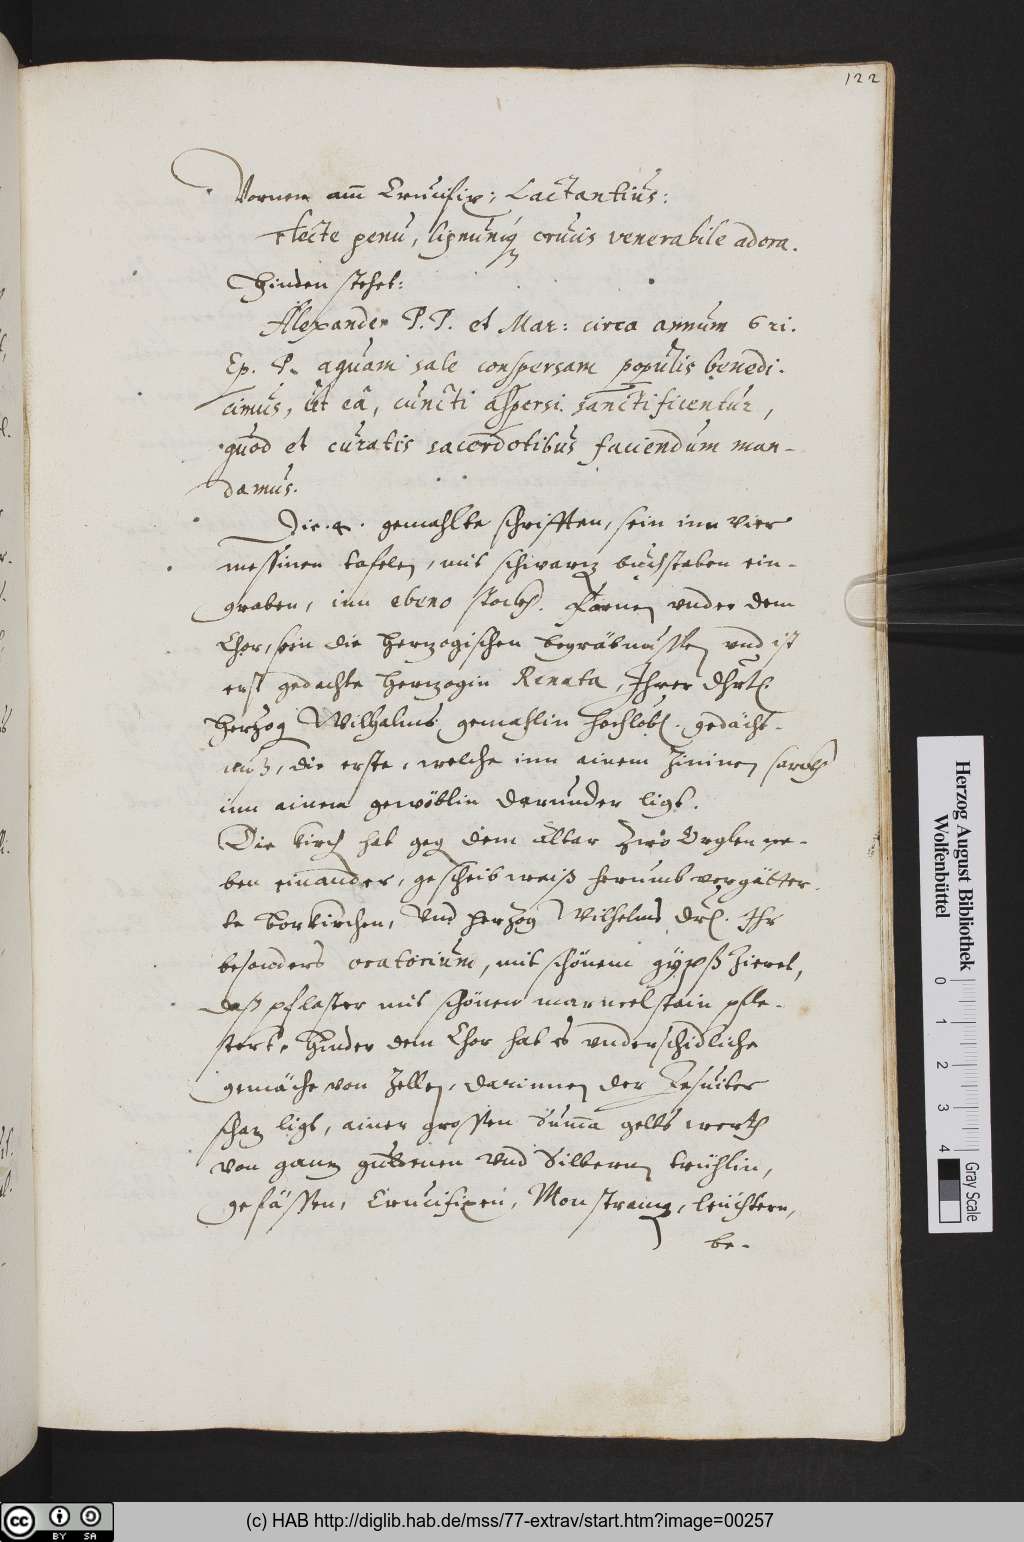 122
Vornen am̃ Crucifix: Lactantius:
flecte genu, lignumq; crucis venerabile adora.
Hinden stehet:
Alexander P. P. et Mar: circa annum 621.
Ep. P. aquam sale conspersam populis benedi-
cimus, ut eâ, cuncti aspersi sanctificentur,
quod et cunctis sacerdotibus faciendum man-
damus.
Die .4. gemahlte schrifften, sein inn vier
messinen tafelen, mit schwartz buchstaben ein-
graben, inn ebeno stockh. Fornen vnder dem
Chor, sein die hertzogischen begräbnussen vnd ist
erst gedachte hertzogin Renata, Ihrer Dhrtl.
Hertzog Wilhalms gemahlin hochlobl. gedächt-
nuß, die erste, welche inn ainem zininen sarckh
inn ainem gewöblin darunder ligt.
Die kirch hat geg dem altar zwo Orglen ne-
ben einander, gescheibweiß herumb vergätter-
te borkirchen, Vnd hertzog Wilhelms Drl. Ihr
besonders oratorium, mit schönem gypß zieret,
daß pflaster mit schönem marmelstain pfle-
stert. Hinder dem Chor hat es vnderschidliche
gemäche von Zellen, darinnen der Jesuiter
schatz ligt, ainer grossen Sum̃a gelts werth
von gantz guldenen vnd Silbernen trühlin,
gefässen, Crucifixen, Monstrantz, leüchtern,
be-
Herzog August Bibliothek
Wolfenbüttel
0 1 2 3 4
Gray Scale
cc BY SA
(c) HAB http://diglib.hab.de/mss/77-extrav/start.htm?image=00257